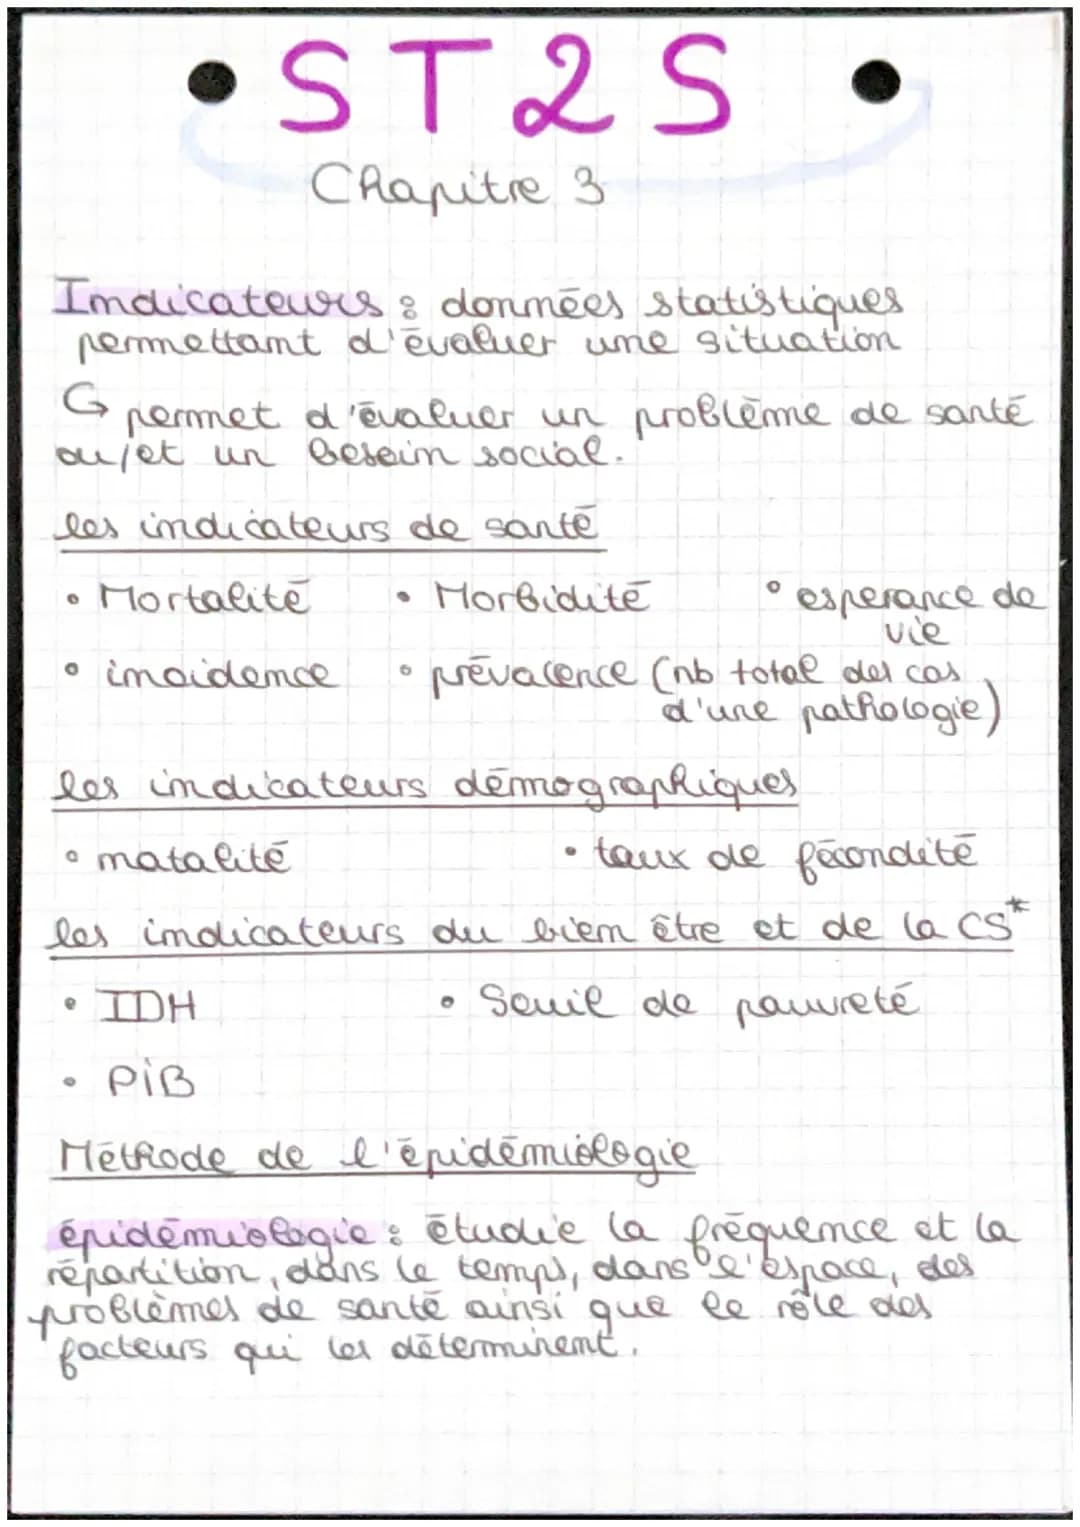 ST2S
Chapitre 3
Indicateurs : données statistiques
permettant d'évaluer une situation
↳ permet d'évaluer un problème de santé
ou/et un besoin social.
les indicateurs de santé
• Mortalité • Morbidité • esperance de
vie
• incidence • prévalence (nb total des cas
d'une pathologie)
les indicateurs démographiques
• natalité • taux de fécondité
les indicateurs du bien être et de la CS*
• IDH • Seuil de pauvreté
• PiB
Méthode de l'épidémiologie
épidémiologie : étudie la fréquence et la
répartition, dans le temps, dans l'espace, des
problèmes de santé ainsi que le rôle des
facteurs qui les déterminent.